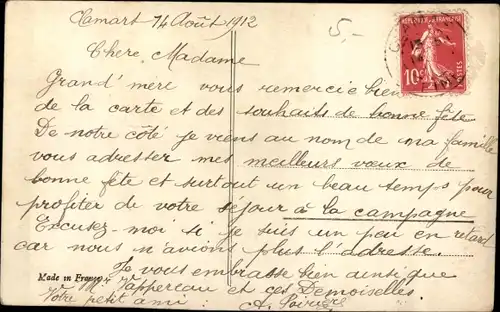 Clamart 14 Août 1912
5.-
Chere Madame
Grand' mèri vous remercie bien
de la carte et des souhaits de bonne fête
De notre côté je viens au nom de ma famille
vous adresser mes meilleurs vœux de
bonne fête et surtout un beau temps pour
profiter de votre séjour à la campagne
Excusez-moi si je suis un peu en retard
car nous n'avions plus l'adresse.
Made in France
Je vous embrasse bien ainsi que
Tappereau et ces Demoiselles.
Votre petit ami :
REPUBLIQUE FRANÇAISE
10c
POSTES